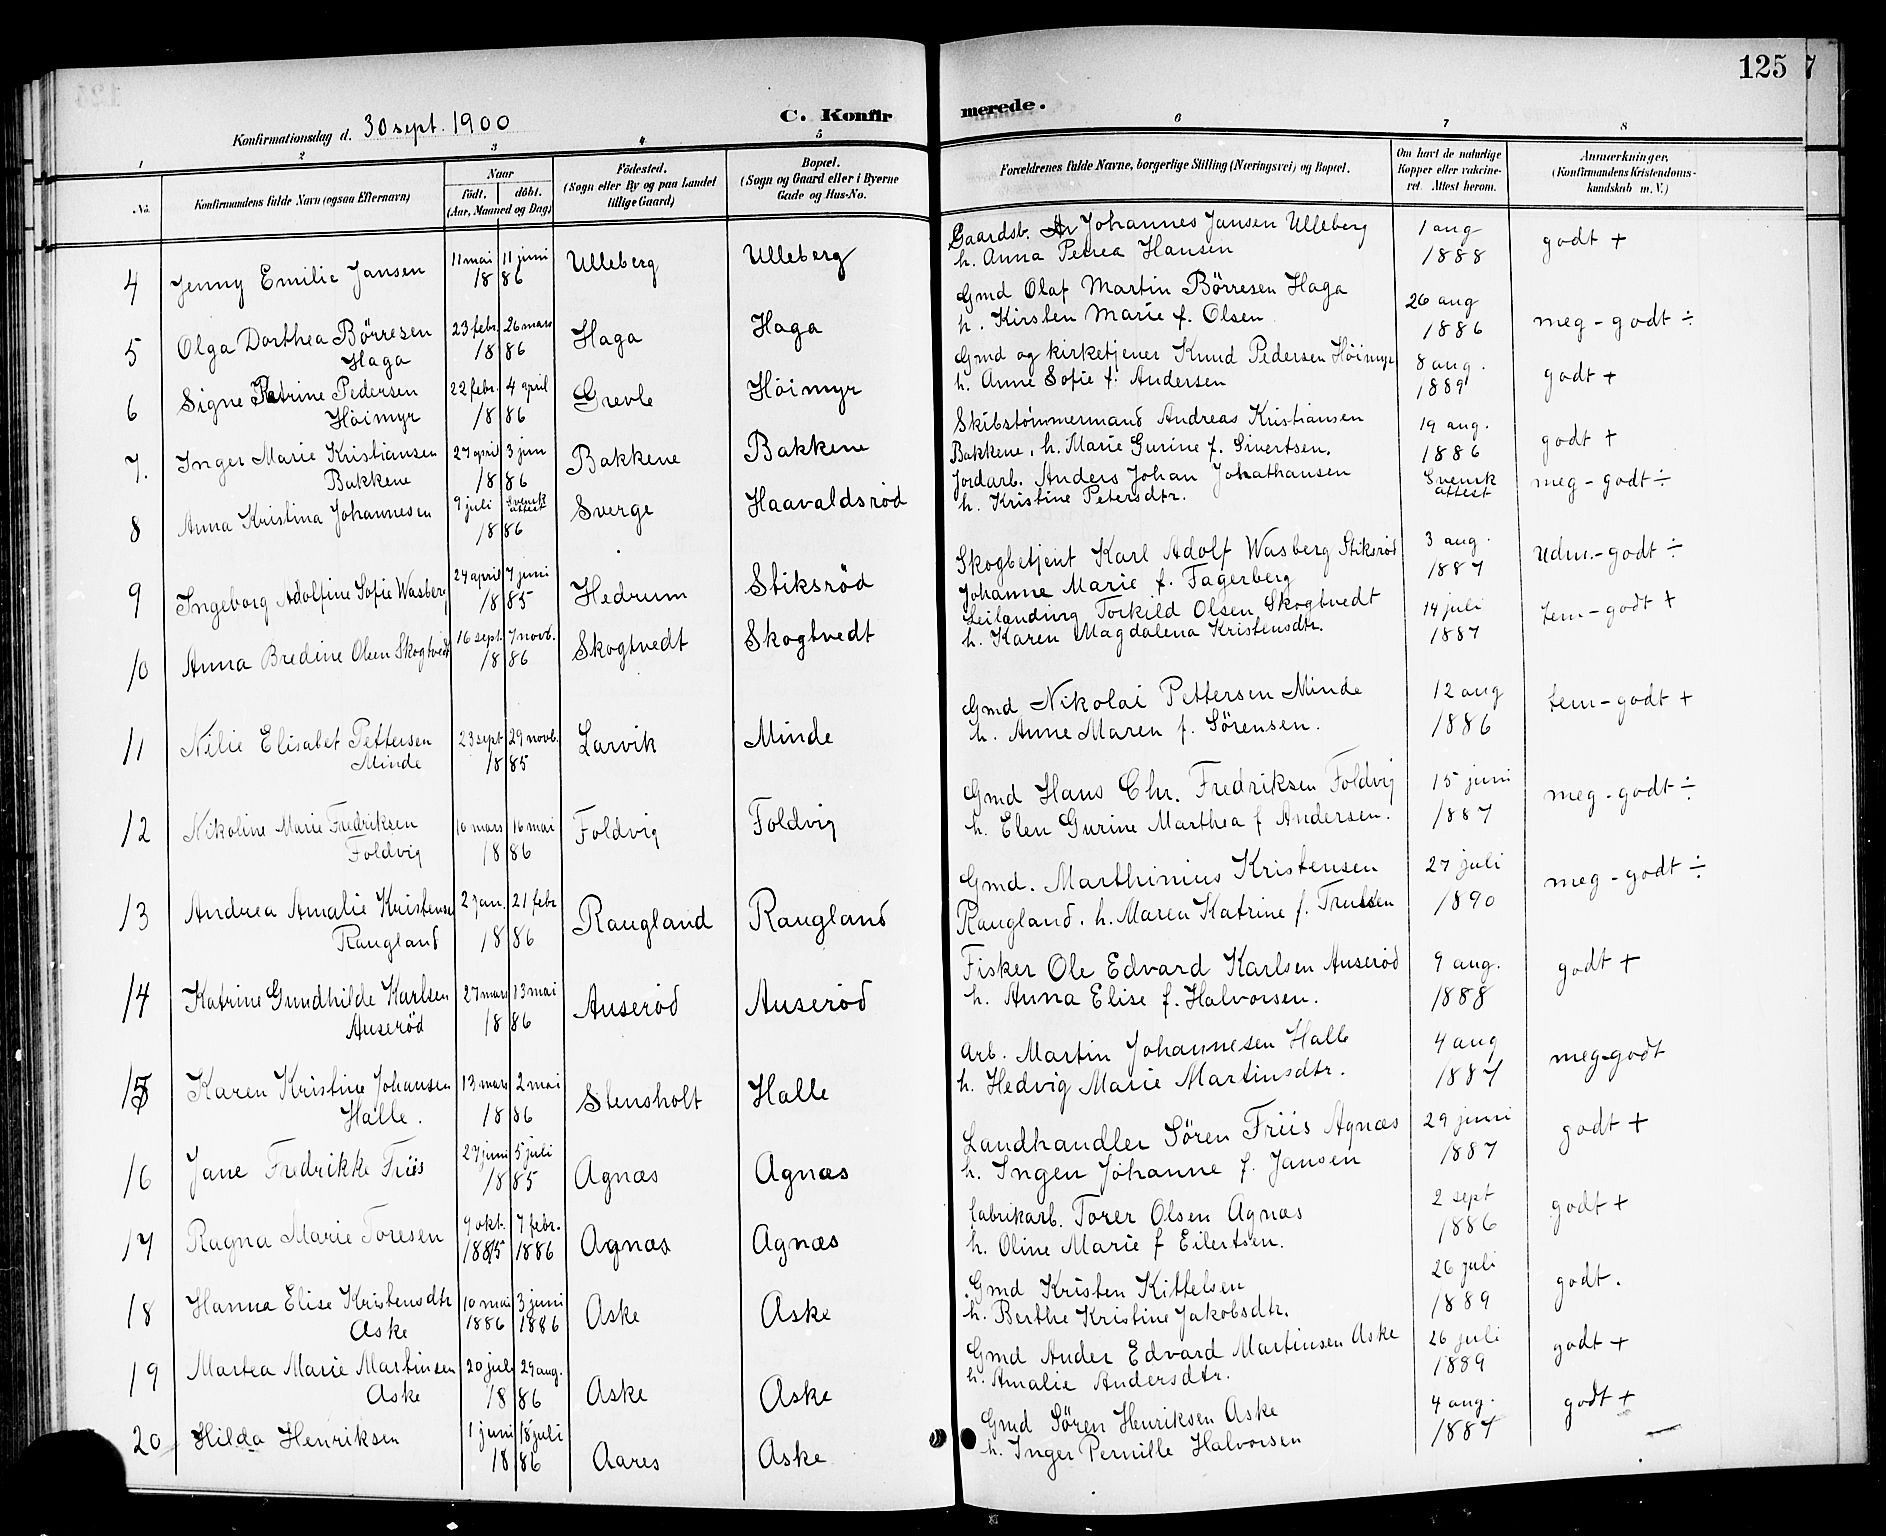 125
Konfirmationsdag d. 30 sept. 1900
C. Konfirmerede.
1 2 3 4 5 6 7 8
No. Konfirmandens fulde Navn (ogsaa Efternavn) Naar født. døbt. (Aar, Maaned og Dag) Fødested. (Sogn eller By og paa Landet tillige Gaard) Bopæl. (Sogn og Gaard eller i Byerne Gade og Hus-No. Forældrenes fulde Navne, borgerlige Stilling (Næringsvei) og Bopæl. Om havt de naturlige Kopper eller vaccineret. Attest herom. Anmærkninger. (Konfirmandens Kristendomskundskab m. V.)
4 Jenny Emilie Jansen 11 mai 11 juni 1886 Ulleberg Ulleberg Gaardsb. Johannes Jansen Ulleberg 1 aug godt +
h. Anna Petrea Hansen 1888
5 Olga Dorthea Börresen 23 febr. 26 mars Haga Haga Gmd Olaf Martin Börresen Haga 26 aug meg-godt ÷
Haga 1886 h. Kirsten Marie f. Olsen 1886
6 Signe Petrine Pedersen 22 febr. 4 april Grevle Höimyr Gmd og kirketjener Knud Pedersen Höimyr 8 aug. godt +
Höimyr 1886 h. Anne Sofie f. Andersen 1889
7. Inger Marie Kristiansen 27 april 3 juni Bakkene Bakkene Skibstömmermand Andreas Kristiansen 19 aug. godt +
Bakkene 1886 Bakkene, h. Marie Gurine f. Sivertsen. 1886
8 Anna Kristina Johannesen 9 juli Svensk attest 1886 Sverge Haavaldsröd Jordarb. Anders Johan Jonathansen Svensk attest meg-godt ÷
h. Kristine Petersdtr.
9 Ingeborg Adolfine Sofie Wasberg 24 april 7 juni 1885 Hedrum Stiksröd Skogbetjent Karl Adolf Wasberg Stiksröd 3 aug. udm.-godt ÷
Johanne Marie f. Fagerberg 1887
10 Anna Bredine Olsen Skogtvedt 16 sept. 7 novb. 1886 Skogtvedt Skogtvedt Leilænding Torkild Olsen Skogtvedt 14 juli tem-godt +
h. Karen Magdalena Kristensdtr. 1887
11 Nilie Elisabet Pettersen 23 sept 29 novb. Larvik Minde Gmd Nikolai Pettersen Minde 12 aug tem-godt +
Minde 1885 h. Anne Maren f. Sörensen. 1886
12 Nikoline Marie Fredriksen 10 mars 16 mai Foldvig Foldvig Gmd Hans Chr. Fredriksen Foldvig 15 juni meg-godt ÷
Foldvig 1886 h. Elen Gurine Marthea f Andersen. 1887
13 Andrea Amalie Kristensen 2 jan. 21 febr Raugland Raugland Gmd. Marthinius Kristensen 27 juli meg-godt ÷
Raugland 1886 Raugland. h. Maren Katrine f. Trulsen 1890
14 Katrine Gundhilde Karlsen 27 mars 13 mai Auseröd Auseröd Fisker Ole Edvard Karlsen Auseröd 9 aug. godt +
Auseröd 1886 h. Anna Elise f. Halvorsen. 1888
15 Karen Kristine Johansen 13 mars 2 mai Stensholt Halle Arb. Martin Johannesen Halle 4 aug meg-godt
Halle. 1886 h. Hedvig Marie Martinsdtr. 1887
16 Jane Fredrikke Friis 27 juni 5 juli 1885 Agnæs Agnæs Landhandler Sören Friis Agnæs 29 juni godt +
h. Ingen Johanne f. Jansen 1887
17 Ragna Marie Toresen 9 okt. 1885 7 febr. 1886 Agnæs Agnæs fabrikarb. Torer Olsen Agnæs 2 sept godt +
h. Oline Marie f Eilertsen. 1886
18 Hanna Elise Kristensdtr 10 mai 3 juni Aske Aske Gmd Kristen Kittelsen 26 juli godt.
Aske 1886 1886 h. Berthe Kristine Jakobsdtr. 1889
19 Martea Marie Martinsen 20 juli 29 aug. Aske Aske Gmd Ander Edvard Martinsen Aske 26 juli godt +
Aske 1886 h. Amalie Andersdtr. 1889
20 Hilda Henriksen 1 juni 18 juli 1886 Aares Aske Gmd Sören Henriksen Aske 4 aug. godt +
h. Inger Pernille Halvorsen 1887